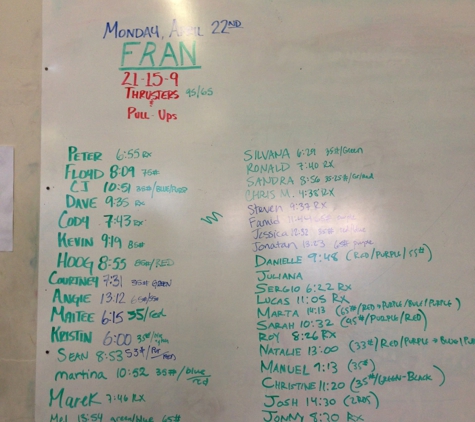 MONDAY, APRIL 22ND
FRAN
21-15-9
THRUSTERS 95/65
PULL-UPS
PETER 6:55 RX
FLOYD 8:09 75#
CJ 10:51 35#/BLUE/
DAVE 9:35 RX
CODY 7:43 RX
KEVIN 9:19 85#
HOOG 8:55 /RED
COURTNEY 7:31 GREEN
ANGIE 13:12
MAITEE 6:15 35/red
KRISTIN 6:00 35#/
SEAN 8:53 53#/
martina 10:52 35#/blue/red
MAREK 7:46 RX
MEL 13:54 green/blue 65#
SILVANA 6:29 35#/Green
RONALD 7:40 RX
SANDRA 8:56
CHRIS M. 4:38 RX
Steven 9:37 RX
Farrid purple
Jessica 12:32
Jonatan 13:53 65# purple
DANIELLE 9:48 (RED/PURPLE/55#)
JULIANA
SERGIO 6:22 RX
LUCAS 11:05 RX
MARTA 14:13 (65#/RED→PURPLE/BLUE/PURPLE)
SARAH 10:32 (45#/PURPLE/RED)
ROY 8:26 RX
NATALIE 13:00 (33#/RED/PURPLE→BLUE/
MANUEL 9:13 (35#)
CHRISTINE 11:20 (35#/GREEN-BLACK)
JOSH 14:30
JONNY 8:20 RX